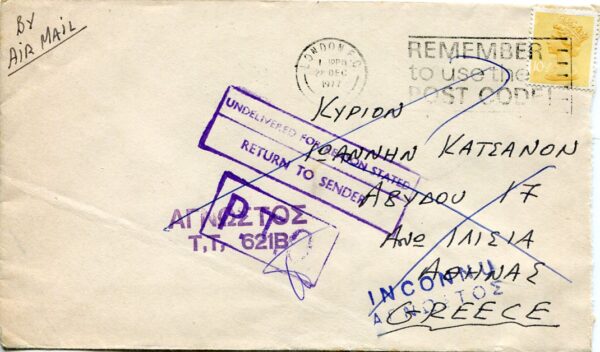 BY
AIR MAIL
LONDON E.C.
DEC
1977
REMEMBER
to use the
POST CODE!
UNDELIVERED FOR REASON STATED
RETURN TO SENDER
ΚΥΡΙΟΝ
ΙΩΑΝΝΗΝ ΚΑΤΣΑΝΟΝ
ΑΒΥΔΟΥ 17
ΑΝΩ ΙΛΙΣΙΑ
ΑΘΗΝΑΣ
GREECE
ΑΓΝΩΣΤΟΣ
Τ.Τ. 621B
P T O
INCONNU
ΑΓΝΩΣΤΟΣ